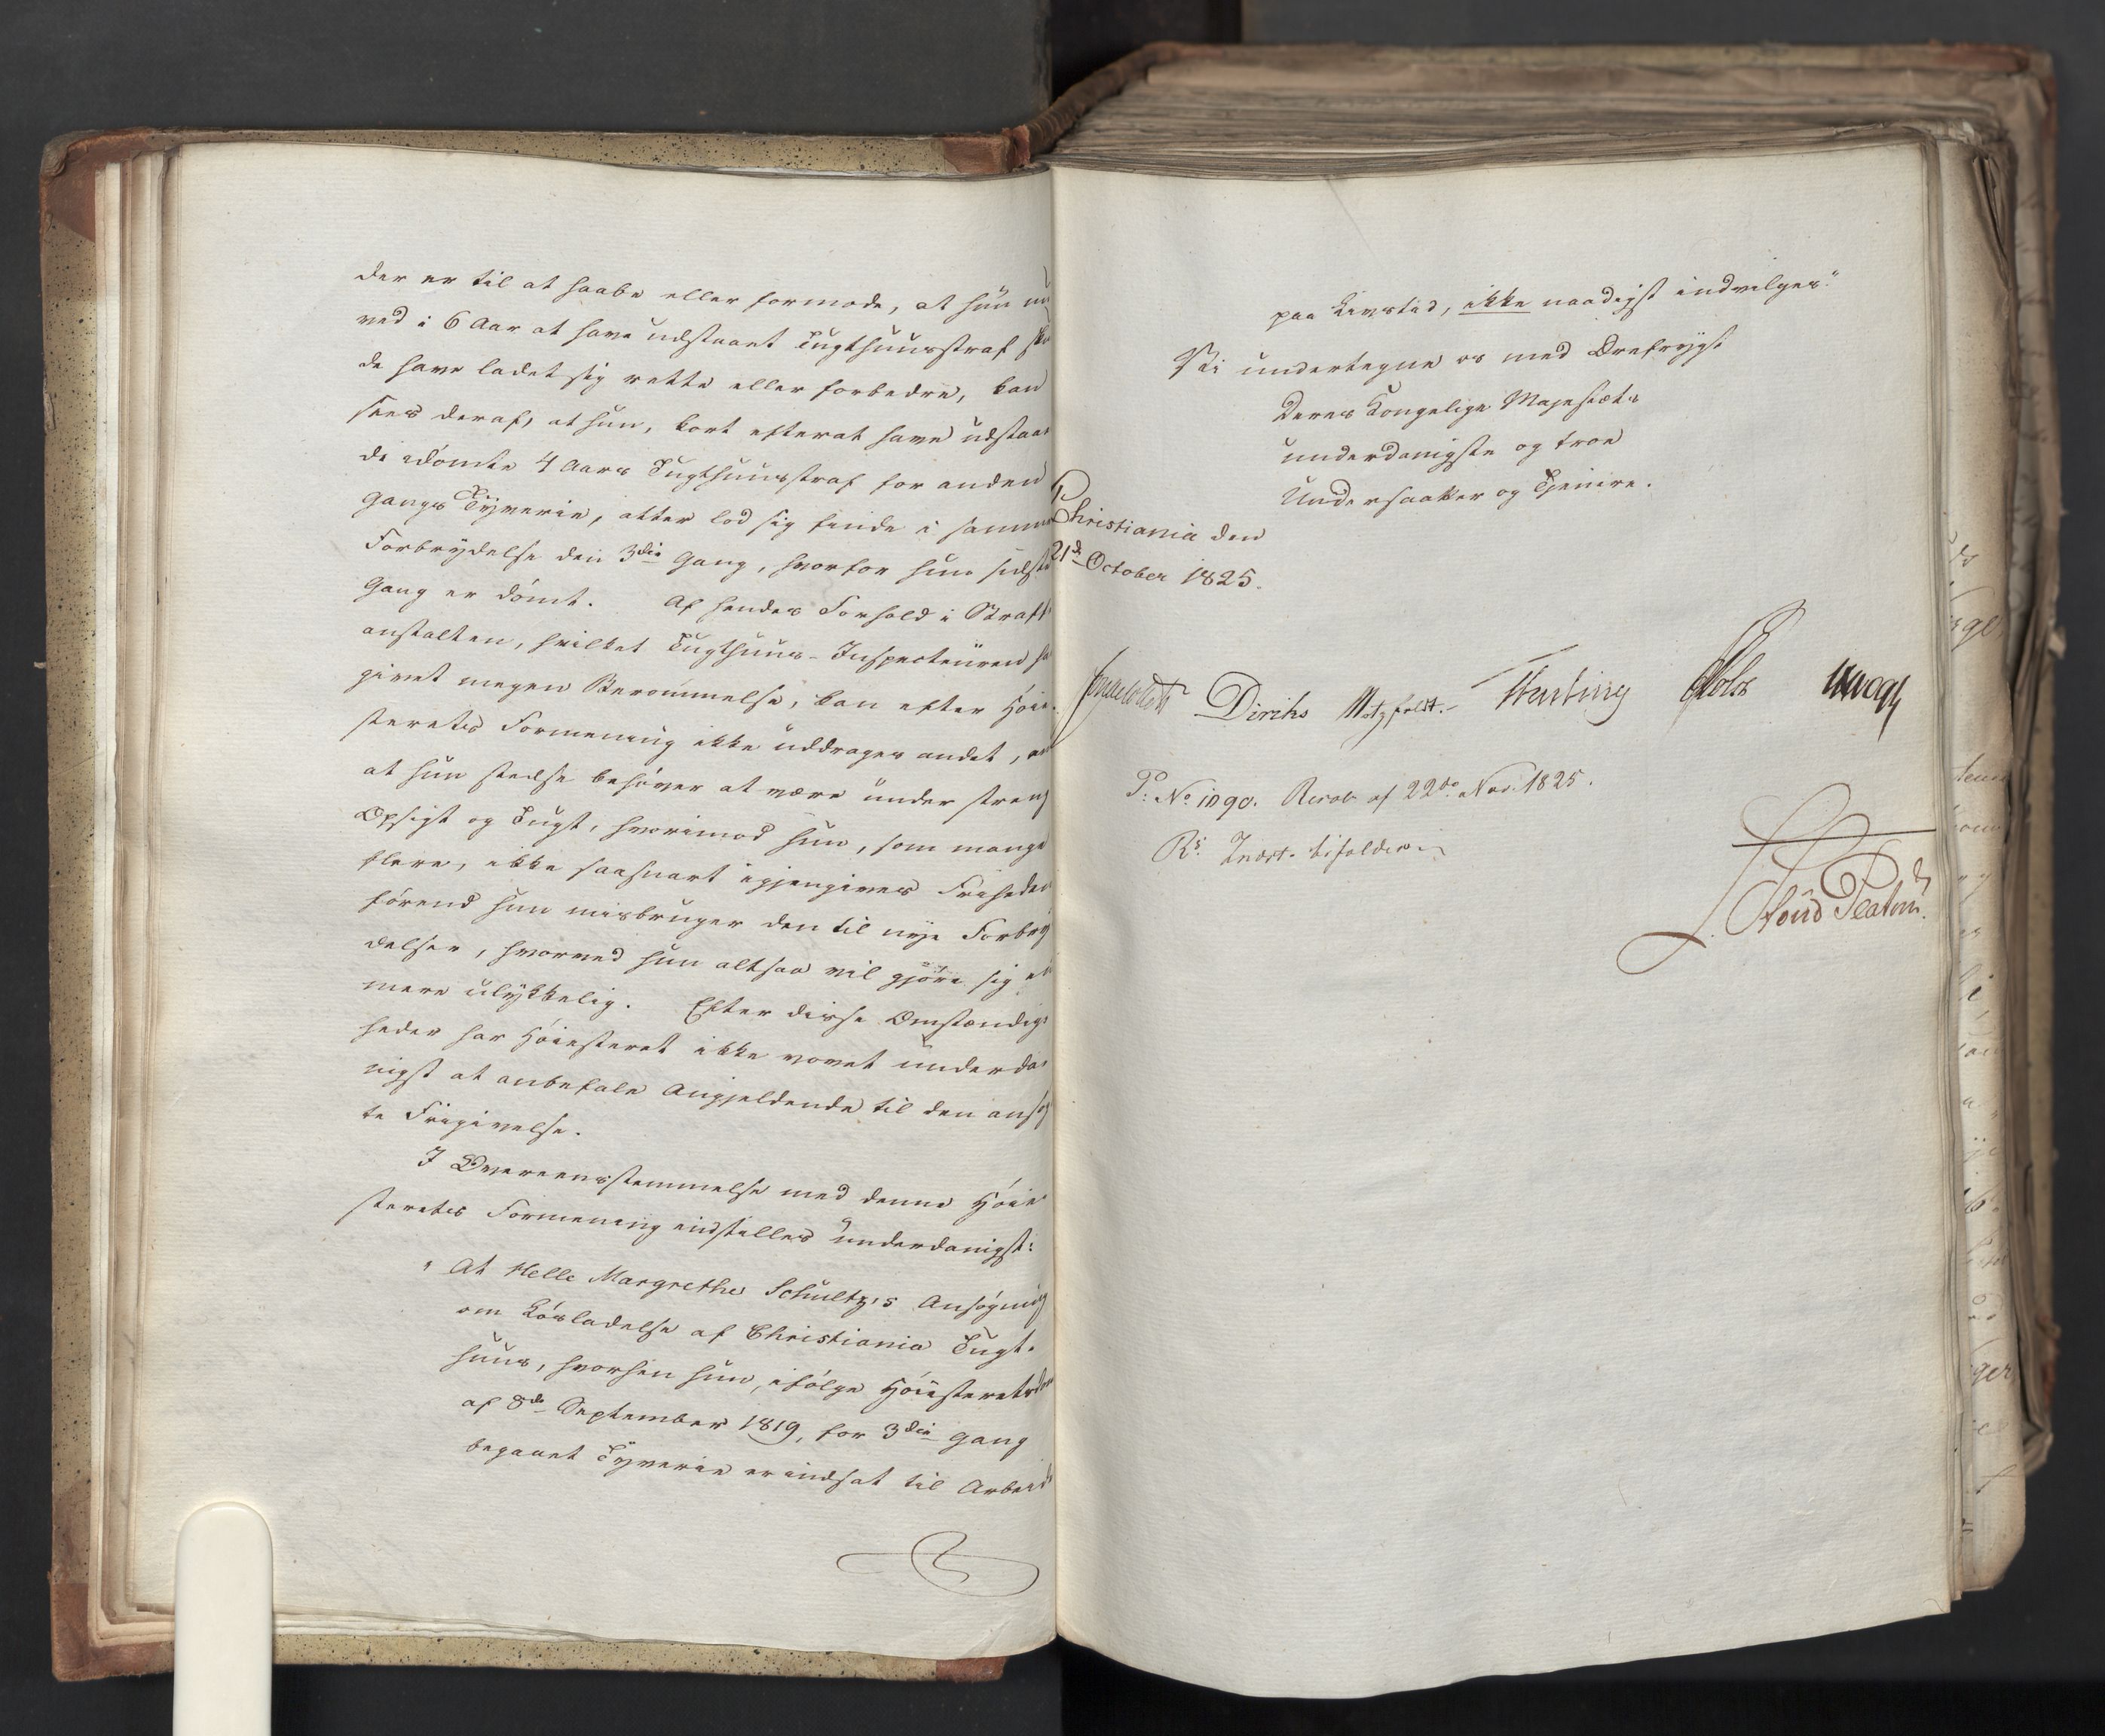 der er til at haabe eller formode, at hun nu
ved i 6 Aar at have udstaaet Tugthuusstraf skul
de have ladet sig rette eller forbedre, kan
sees deraf, at hun, kort efterat have udstaaet
de idömte 4 Aars Tugthuusstraf for anden
Gangs Tyverie, atter lod sig finde i samme
Forbrydelse den 3die Gang, hvorfor hun sidste
Gang er dömt. Af hendes Forhold i Straf-
anstalten, hvilket Tugthuus-Inspecteuren har
givet megen Berömmelse, kan efter Höie-
sterets Formening ikke uddrages andet, end
at hun stedse behöver at være under streng
Opsigt og Tugt, hvorimod hun, som mange
flere, ikke saasnart igjengives Friheden
förend hun misbruger den til nye Forbry
delser, hvorved hun altsaa vil gjöre sig end
mere ulykkelig. Efter disse Omstændig-
heder har Höiesteret ikke vovet underda-
nigst at anbefale Angjeldende til den ansög
te Frigivelse.
I Overeensstemmelse med denne Höie-
sterets Formening indstilles underdanigst:
" At Helle Margrethe Schultz's Ansögning
om Lösladelse af Christiania Tugt-
huus, hvorhen hun, ifölge Höiesteretsdom
af 8de September 1819, for 3die Gang
begaaet Tyverie er indsat til Arbeid
paa Livstid, ikke naadigst indvilges."
Vi undertegne os med Ærefrygt
Deres Kongelige Majestæts
underdanigste og troe
Undersaatter og Tjenere.
Christiania den
21de October 1825.
Diriks Motzfeldt. Holst Krogh
P: No 1090. Resol. af 22de Nov. 1825.
Rs. Indst. bifaldes